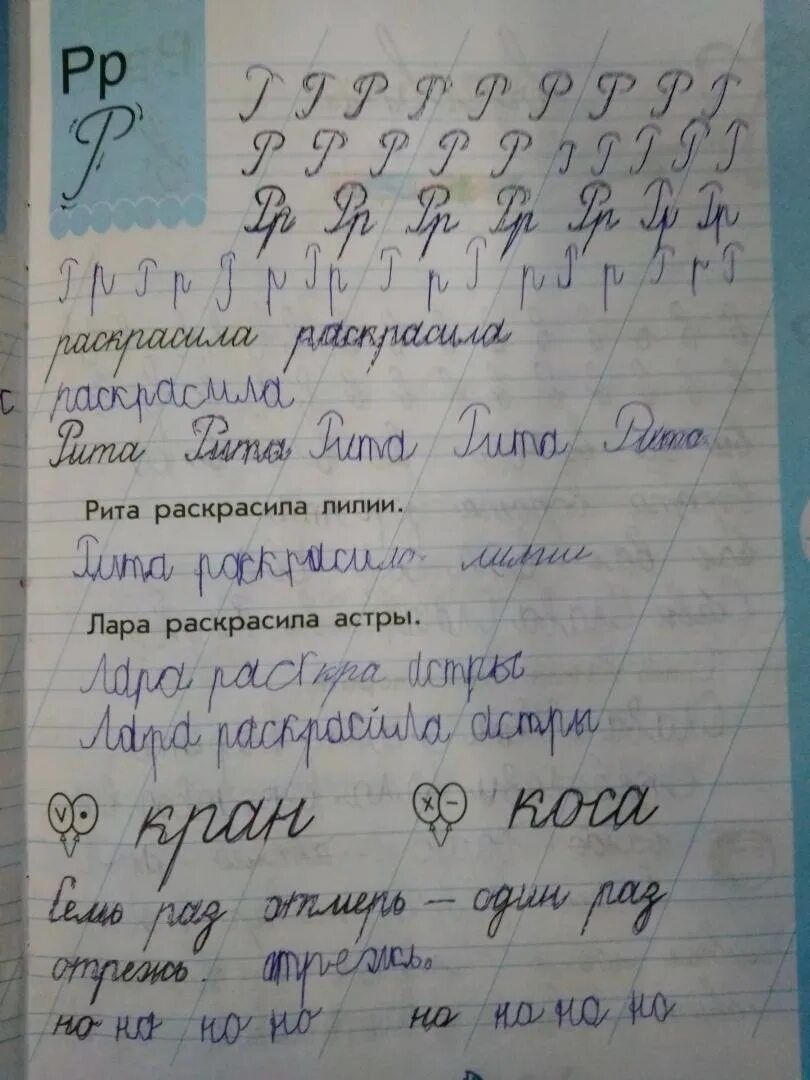 Рр
Р
Г Р Р Р Р Р Р Р Г
Р Р Р Р Р г Г Г Р Г
Рр Рр Рр Рр Рр Гр Гр
Г р Г р Г р Гр Г р Г р Г р Г р Г
раскрасила раскрасила
раскрасила
Рита Рита Рита Рита Рита
Рита раскрасила лилии.
Рита раскрасила лилии
Лара раскрасила астры.
Лара раскра астры
Лара раскрасила астры
v • кран x – коса
Семь раз отмерь – один раз
отрежь. отрежь.
но на но но но на на но